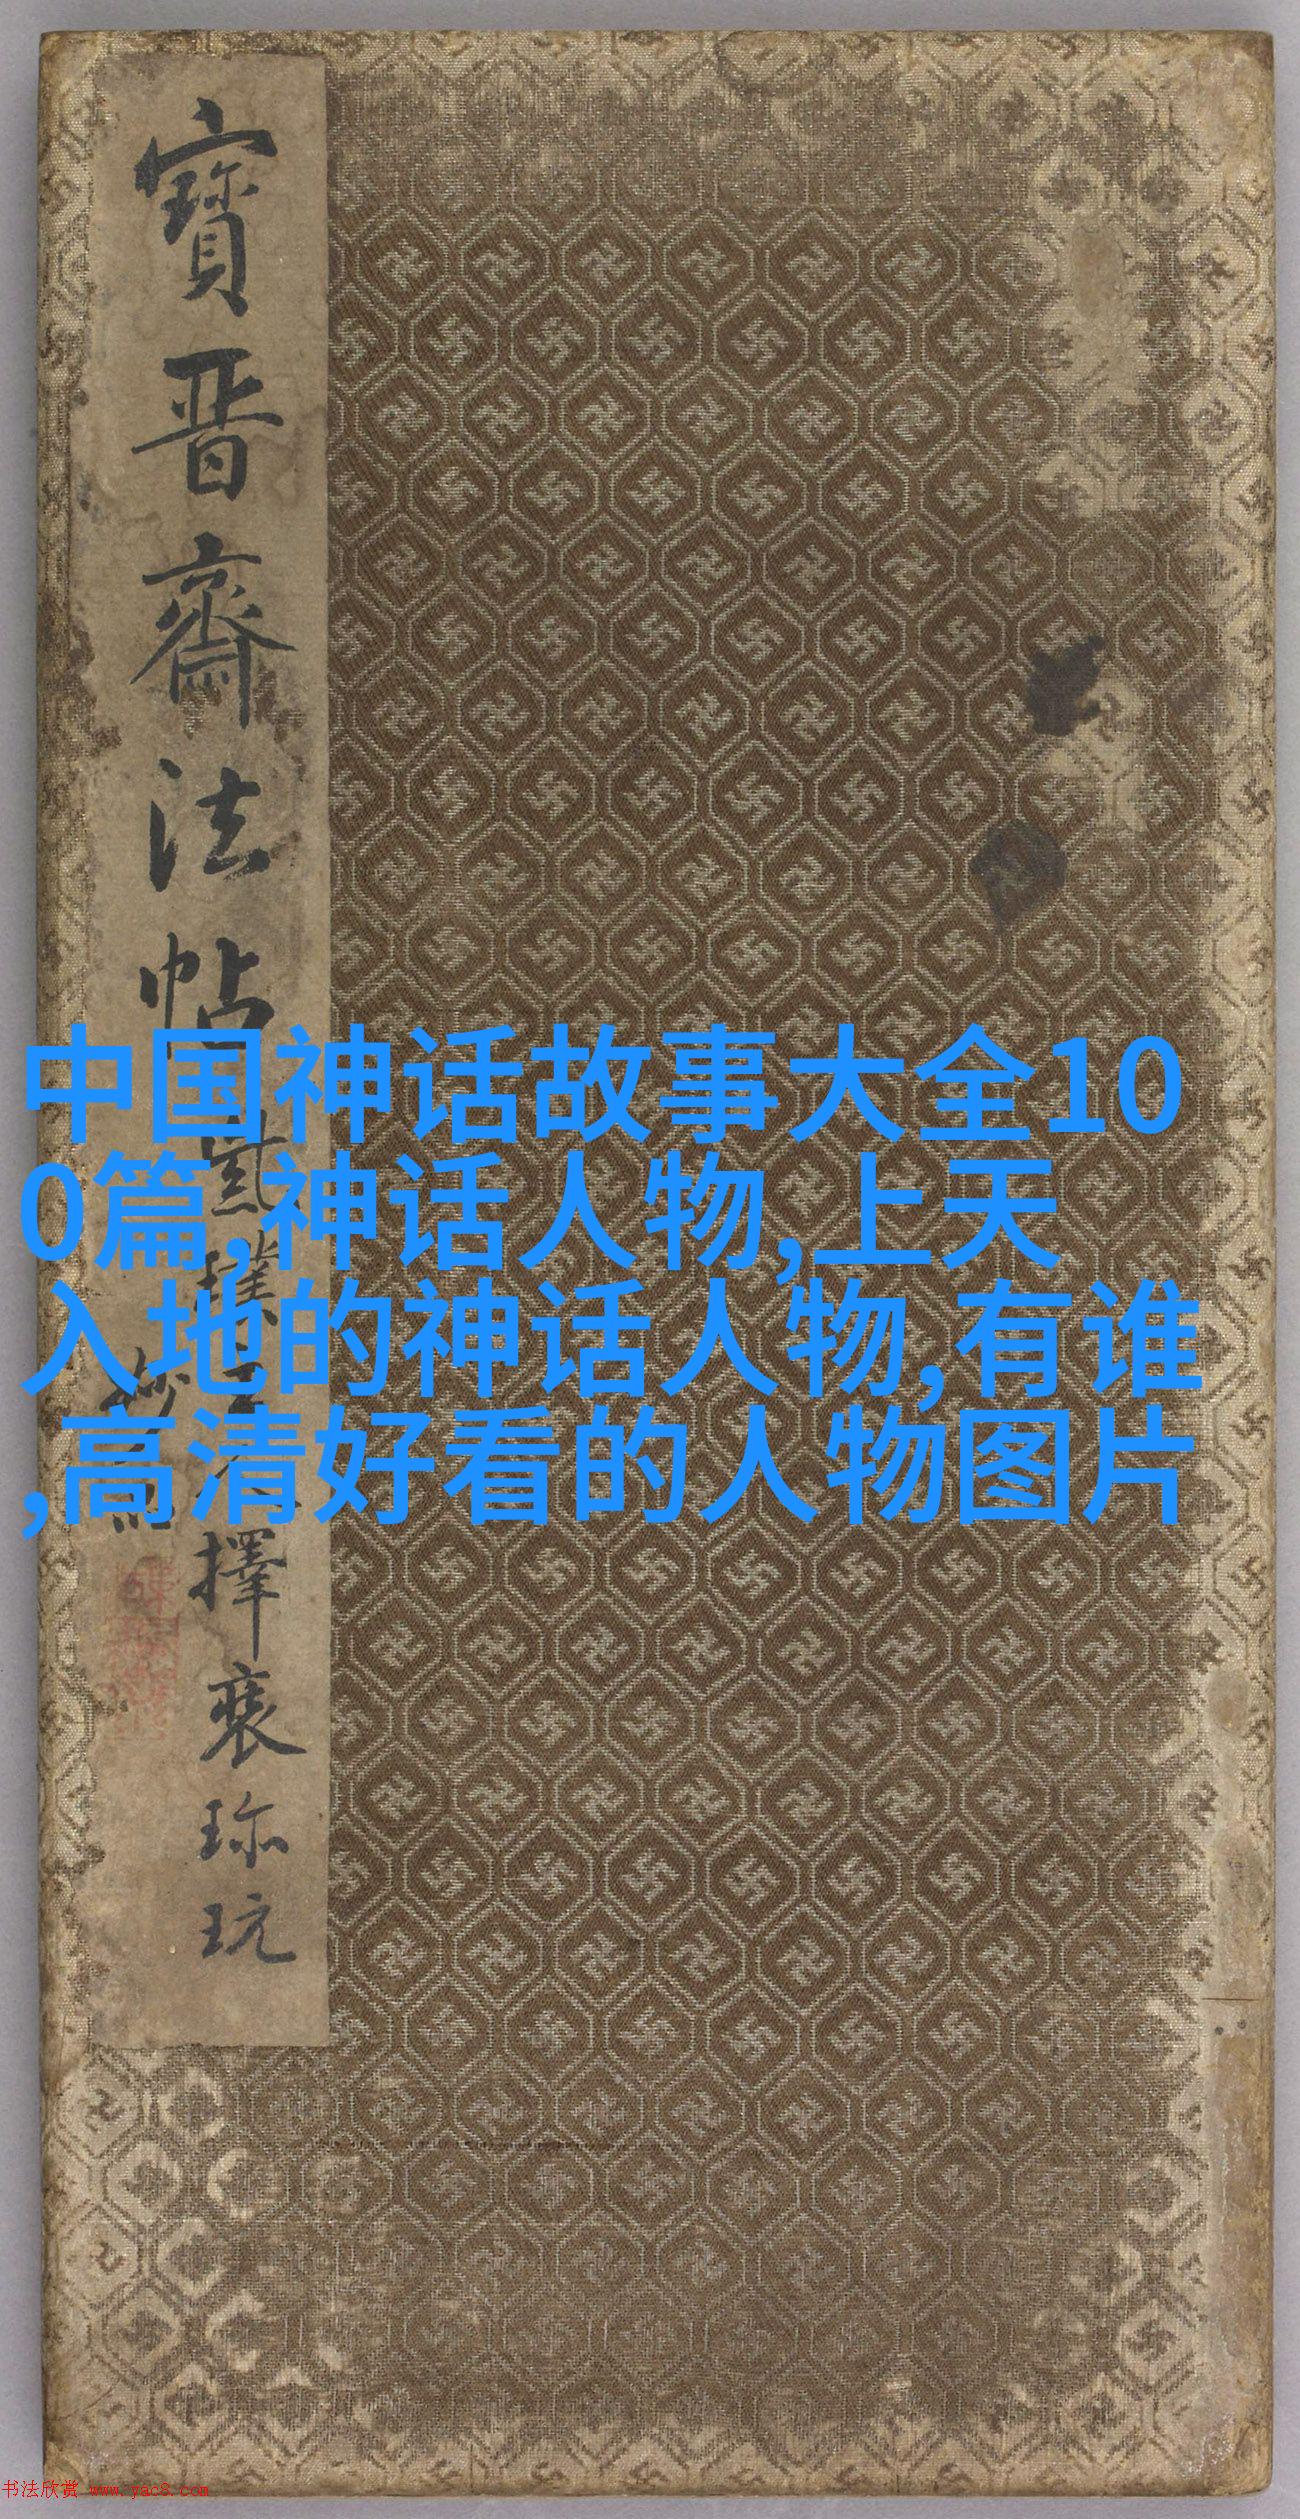 寶晉齋法帖
擇 珎玩
中国神话故事大全10
0篇,神话人物,上天
入地的神话人物,有谁
,高清好看的人物图片
书法欣赏 www.yac8.com